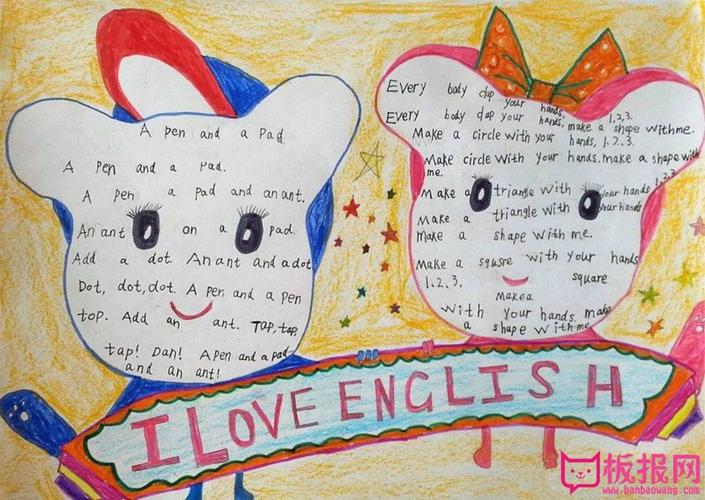 A pen and a pad
A pen and a pad.
A pen a pad and an ant.
An ant on a pad.
Add a dot. An ant and a dot
Dot, dot, dot. A pen and a pen
top. Add an ant. Tap, tap,
tap! Dan! A pen and a pad
and an ant!
Every body clap your hands, 1,2,3.
Every body clap your hands, make a shape with me.
Make a circle with your hands, 1.2.3.
Make circle with your hands. make a shape with
me.
Make a triangle with your hands 1.2.3
Make a triangle with your hands
Make a shape with me.
Make a square with your hands
1.2.3. square
Make a
with your hands, make
a shape with me
I LOVE ENGLISH
板报网
www.banbaowang.com